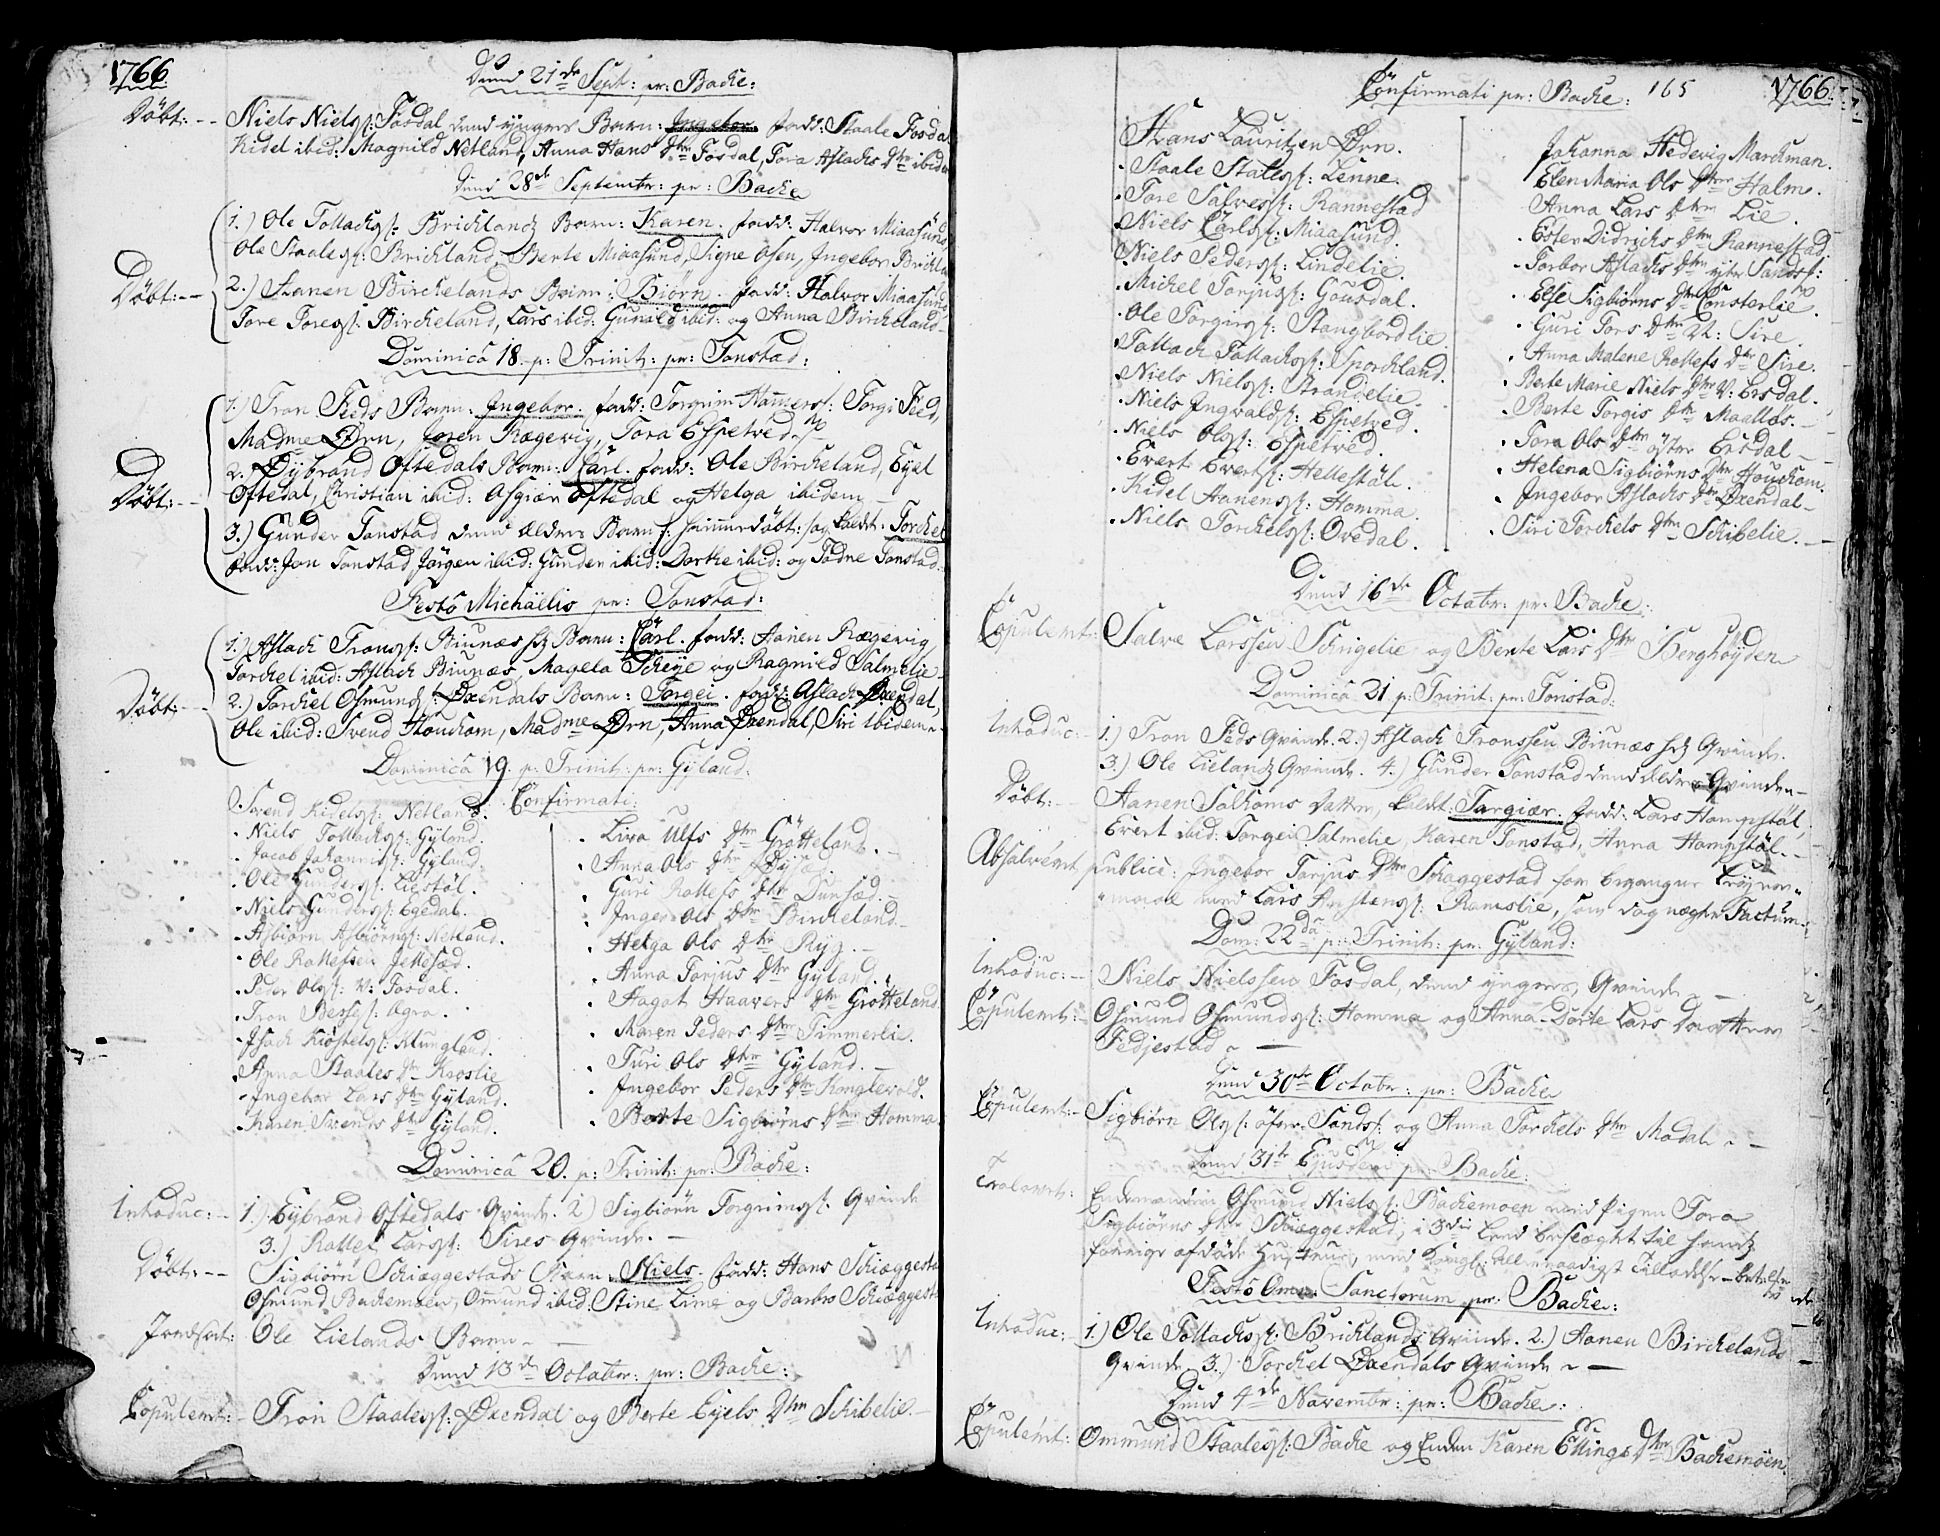 1766
Dend 21de Sept: pr: Backe:
Døbt: -- Niels Nielss: Fosdal dend yngers Barn: Ingebor. fadd: Staale Fosdal
Kidel ibid: Magnild Netland, Anna Hans Dtr Fosdal, Tora Aslachs Dtr ibidem
Dend 28de Septembr: pr: Backe
1.) Ole Tollachs: Bricklands Barn: Karen. fadd: Halvor Miaasund
Ole Staales: Brickland, Berte Miaasund, Signe Osen, Ingebor Brickland
Døbt: -- 2.) Aanen Birckelands Barn: Biørn. fadd: Halvor Miaasund
Tore Tores: Birckeland, Lars ibid: Gunild ibid: og Anna Birckeland
Dominica 18. p: Trinit: pr: Tonstad:
1.) Tron Feeds Barn: Ingebor. fadd: Torgrim Hammers: Torgi Feed,
Madme Ørn, Joren Rægevig, Tora Espetved
2. Eybrand Oftedals Barn: Carl. fadd: Ole Birckeland, Eyel
Døbt: -- Oftedal, Christian ibid: Asgiær Oftedal og Helga ibidem
3.) Gunder Tonstad dend Eldres Barn hiemmedøbt: sag kaldt: Torckel
fadd: Jon Tonstad Jørgen ibid: Gunder ibid: Dorthe ibid: og Todne Tonstad
Festo Michaëlis pr: Tonstad:
1.) Aslach Trons: Biunæs hs Barn: Carl. fadd: Aanen Rægevig
Torckel ibid: Aslach Biunæs, Magela Scheye og Ragnild Salmelie
Døbt: -- 2.) Torckel Osmunds: Øxendals Barn: Torgei. fadd: Aslach Øxendal,
Ole ibid: Svend Houckom, Madme Ørn, Anna Øxendal, Siri ibidem
Dominica 19. p: Trinit: pr: Gyland:
Confirmati:
Svend Kidels: Netland.
Niels Tollachs: Gyland.
Jacob Johannis: Gyland.
Ole Gunders: Liestøl.
Niels Gunders: Egedal.
Asbiørn Asbiørns: Netland.
Ole Rollefsen Jellesæd.
Peder Ols: v: Fosdal.
Tron Besses: Ogra.
Isach Kiøstels: Klungland.
Anna Staales Dtr Kroslie
Ingebor Lars Dtr Gyland.
Karen Svends Dtr Gyland.
Liva Ulfs Dtr Grøtteland.
Anna Ols Dtr
Guri Rollefs Dtr Dunsæd.
Inger Ols Dtr Birckeland.
Helga Ols Dtr Ryg.
Anna Torjus Dtr Gyland.
Aagot Haavers Dtr Grøtteland
Maren Peders Dtr Timmerlie.
Turi Ols Dtr Gyland.
Ingebor Peders Dtr Konglevold.
Berte Sigbiørns Dtr Homma
Dominica 20. p: Trinit: pr: Backe:
Introduc: -- 1.) Eybrand Oftedals Qvinde. 2) Sigbiørn Torgrims: Qvinde
3.) Rollef Larss: Sires Qvinde.
Døbt: -- Sigbiørn Schiæggestads Barn. Niels. fadd: Hans Schiæggestad
Osmund Backemoen, Ommund ibid: Stine Lime og Barbro Schiæggestad
Jordsat: Ole Lielands Barn
Dend 13de Octobr: pr: Backe:
Copulerit: Tron Staales: Øxendal og Berte Eyels Dtr Schibelie.
Confirmati pr: Backe: 165 1766.
Hans Lauritzen Ørn.
Staale Stales: Lenne.
Tore Salves: Rannestad
Niels Carls: Miaasund.
Niels Peders: Lindelie.
Michel Torjus: Gousdal.
Ole Torgirs: Stangbordlie.
Tollach Tollachs: Sporckland.
Niels Niels: Strandelie.
Niels Ingvalds: Espetved.
Niels Ols: Espetved.
Evert Everts: Hellestøl.
Kidel Aanens: Homma
Niels Torckels: Ovedal.
Johanna Hedevig Marckman.
Elen Maria Ols Dtr Halm.
Anna Lars Dtr Lie.
Ester Didrichs Dtr Rannestad
Torbor Aslachs Dtr yter Sands:
Else Sigbiørns Dtr Consterlie.
Guri Tors Dtr N: Sire.
Anna Malene Rollefs Dtr Sire.
Berte Marie Niels Dtr V: Ersdal.
Berte Torgis Dtr Maallos.
Tora Ols Dtr øster Ersdal
Helena Sigbiørns Dtr Houckom.
Ingebor Aslachs Dtr Øxendal
Siri Torckels Dtr Schibelie.
Dend 16de Octobr: pr: Backe:
Copulerit: Salve Larssen Schrigelie og Berte Lars Dtr Berghøyden
Dominica 21 p: Trinit: pr: Tonstad:
Introduc: 1.) Tron Feds Qvinde. 2.) Aslach Tronssen Biunæs hs Qvinde.
3.) Ole Lielands Qvinde. 4.) Gunder Tonstad dend Eldres Qvinde
Døbt: Aanen Salhoms Datter, kaldt: Targiær. fadd: Lars Hompstøl,
Evert ibid: Torgei Salmelie, Karen Tonstad, Anna Hompstøl.
Absolverit publice: Ingebor Torjus Dtr Schæggestad for begangne Leyer
maal med Lars Ramslie, som dog nægter Factum
Dom: 22da p: Trinit: pr: Gyland:
Introduc: -- Niels Nielssen Fosdal, dend yngers, Qvinde
Copulerit: Osmund Osmunds: Homma og Anna Dorte Lars Daatter
Fedjestad
Dend 30te Octobr: pr: Backe
Copulerit: Sigbiørn Ols: øfore Sands: og Anna Torckels Dtr Modal
Dend 31te Ejusdem pr: Backe:
Trolovet: Enckemanden Osmund Niels: Backemoen med Pigen Tora
Sigbiørns Dtr Schiæggestad, i 3die Leed beslægtet til hans
forrige afdøde Hustrue, med Kongl: All: naadigst Tilladelse
Festo Omn: Sanctorum pr: Backe:
Introduc: 1.) Ole Tollachs: Bricklands Qvinde. 2.) Aanen Birckelands
Qvinde 3.) Torckel Øxendals Qvinde
Dend 4de Novembr: pr: Backe:
Copulerit: Ommund Staales: Backe og Enken Karen Ellings Dtr Backemoen.